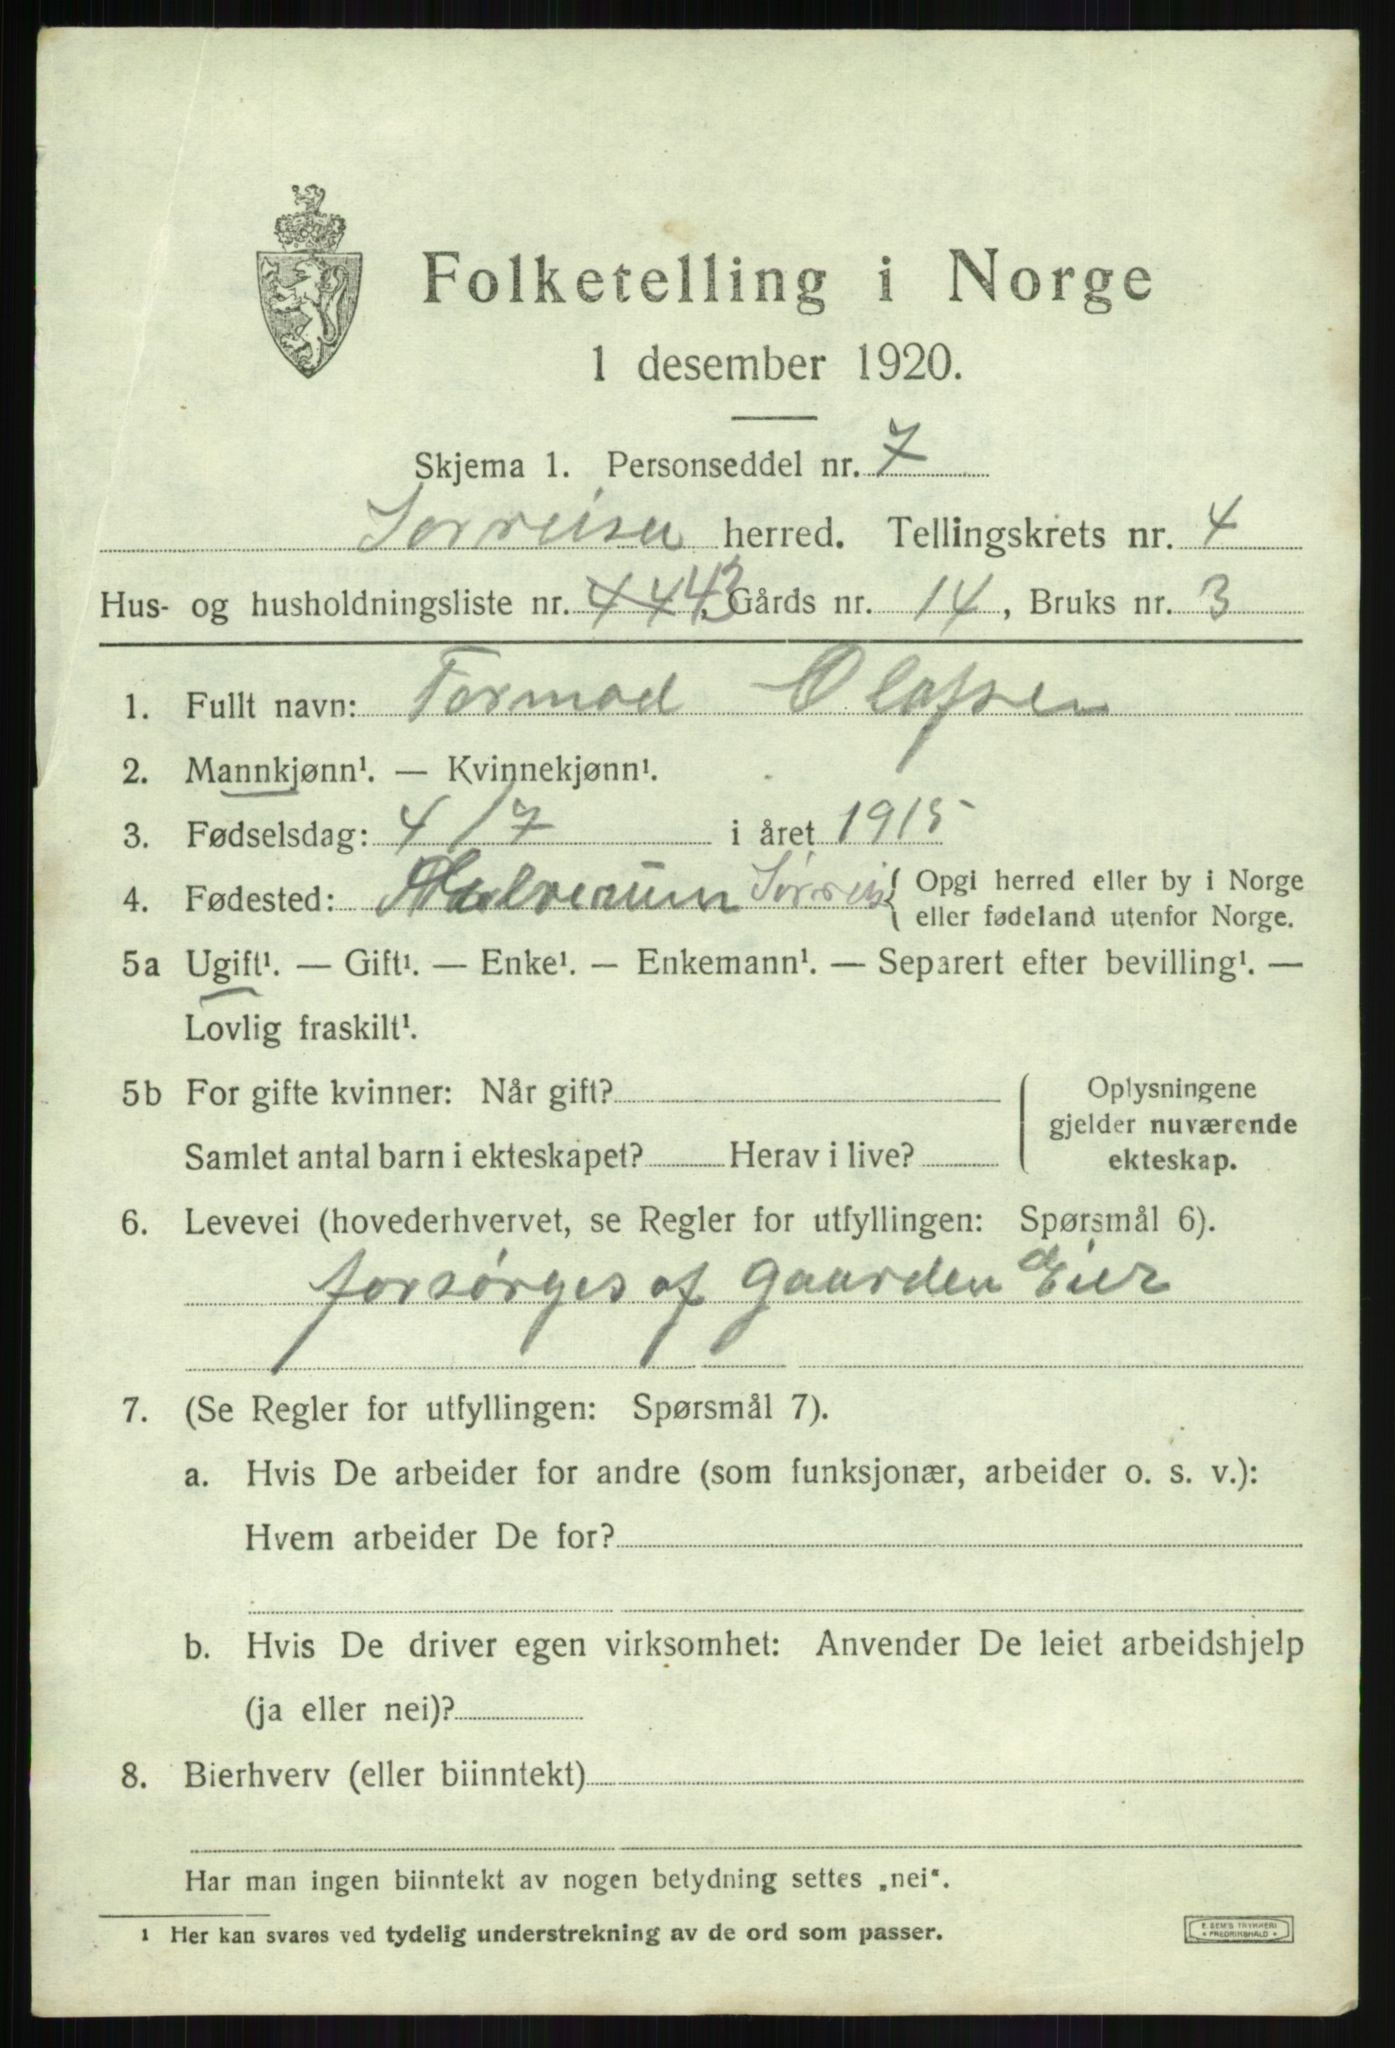 Folketelling i Norge
1 desember 1920.
Skjema 1. Personseddel nr. 7
Sorreisa herred. Tellingskrets nr. 4
Hus- og husholdningsliste nr. 44 43, Gårds nr. 14, Bruks nr. 3
1. Fullt navn: Tormod Olafsen
2. Mannkjønn¹. — Kvinnekjønn¹.
3. Fødselsdag: 4/7 i året 1915
4. Fødested: Sørreis { Opgi herred eller by i Norge
eller fødeland utenfor Norge.
5a Ugift¹. — Gift¹. — Enke¹. — Enkemann¹. — Separert efter bevilling¹. —
Lovlig fraskilt¹.
5b For gifte kvinner: Når gift? ( Oplysningene
gjelder nuværende
Samlet antal barn i ekteskapet? Herav i live? ekteskap.
6. Levevei (hovederhvervet, se Regler for utfyllingen: Spørsmål 6).
forsørges af Gaarden Eier
7. (Se Regler for utfyllingen: Spørsmål 7).
a. Hvis De arbeider for andre (som funksjonær, arbeider o. s. v.):
Hvem arbeider De for?
b. Hvis De driver egen virksomhet: Anvender De leiet arbeidshjelp
(ja eller nei)?
8. Bierhverv (eller biinntekt)
Har man ingen biinntekt av nogen betydning settes „nei“.
¹ Her kan svares ved tydelig understrekning av de ord som passer.
E. SEM'S TRYKKERI
* FREDRIKSHALD *